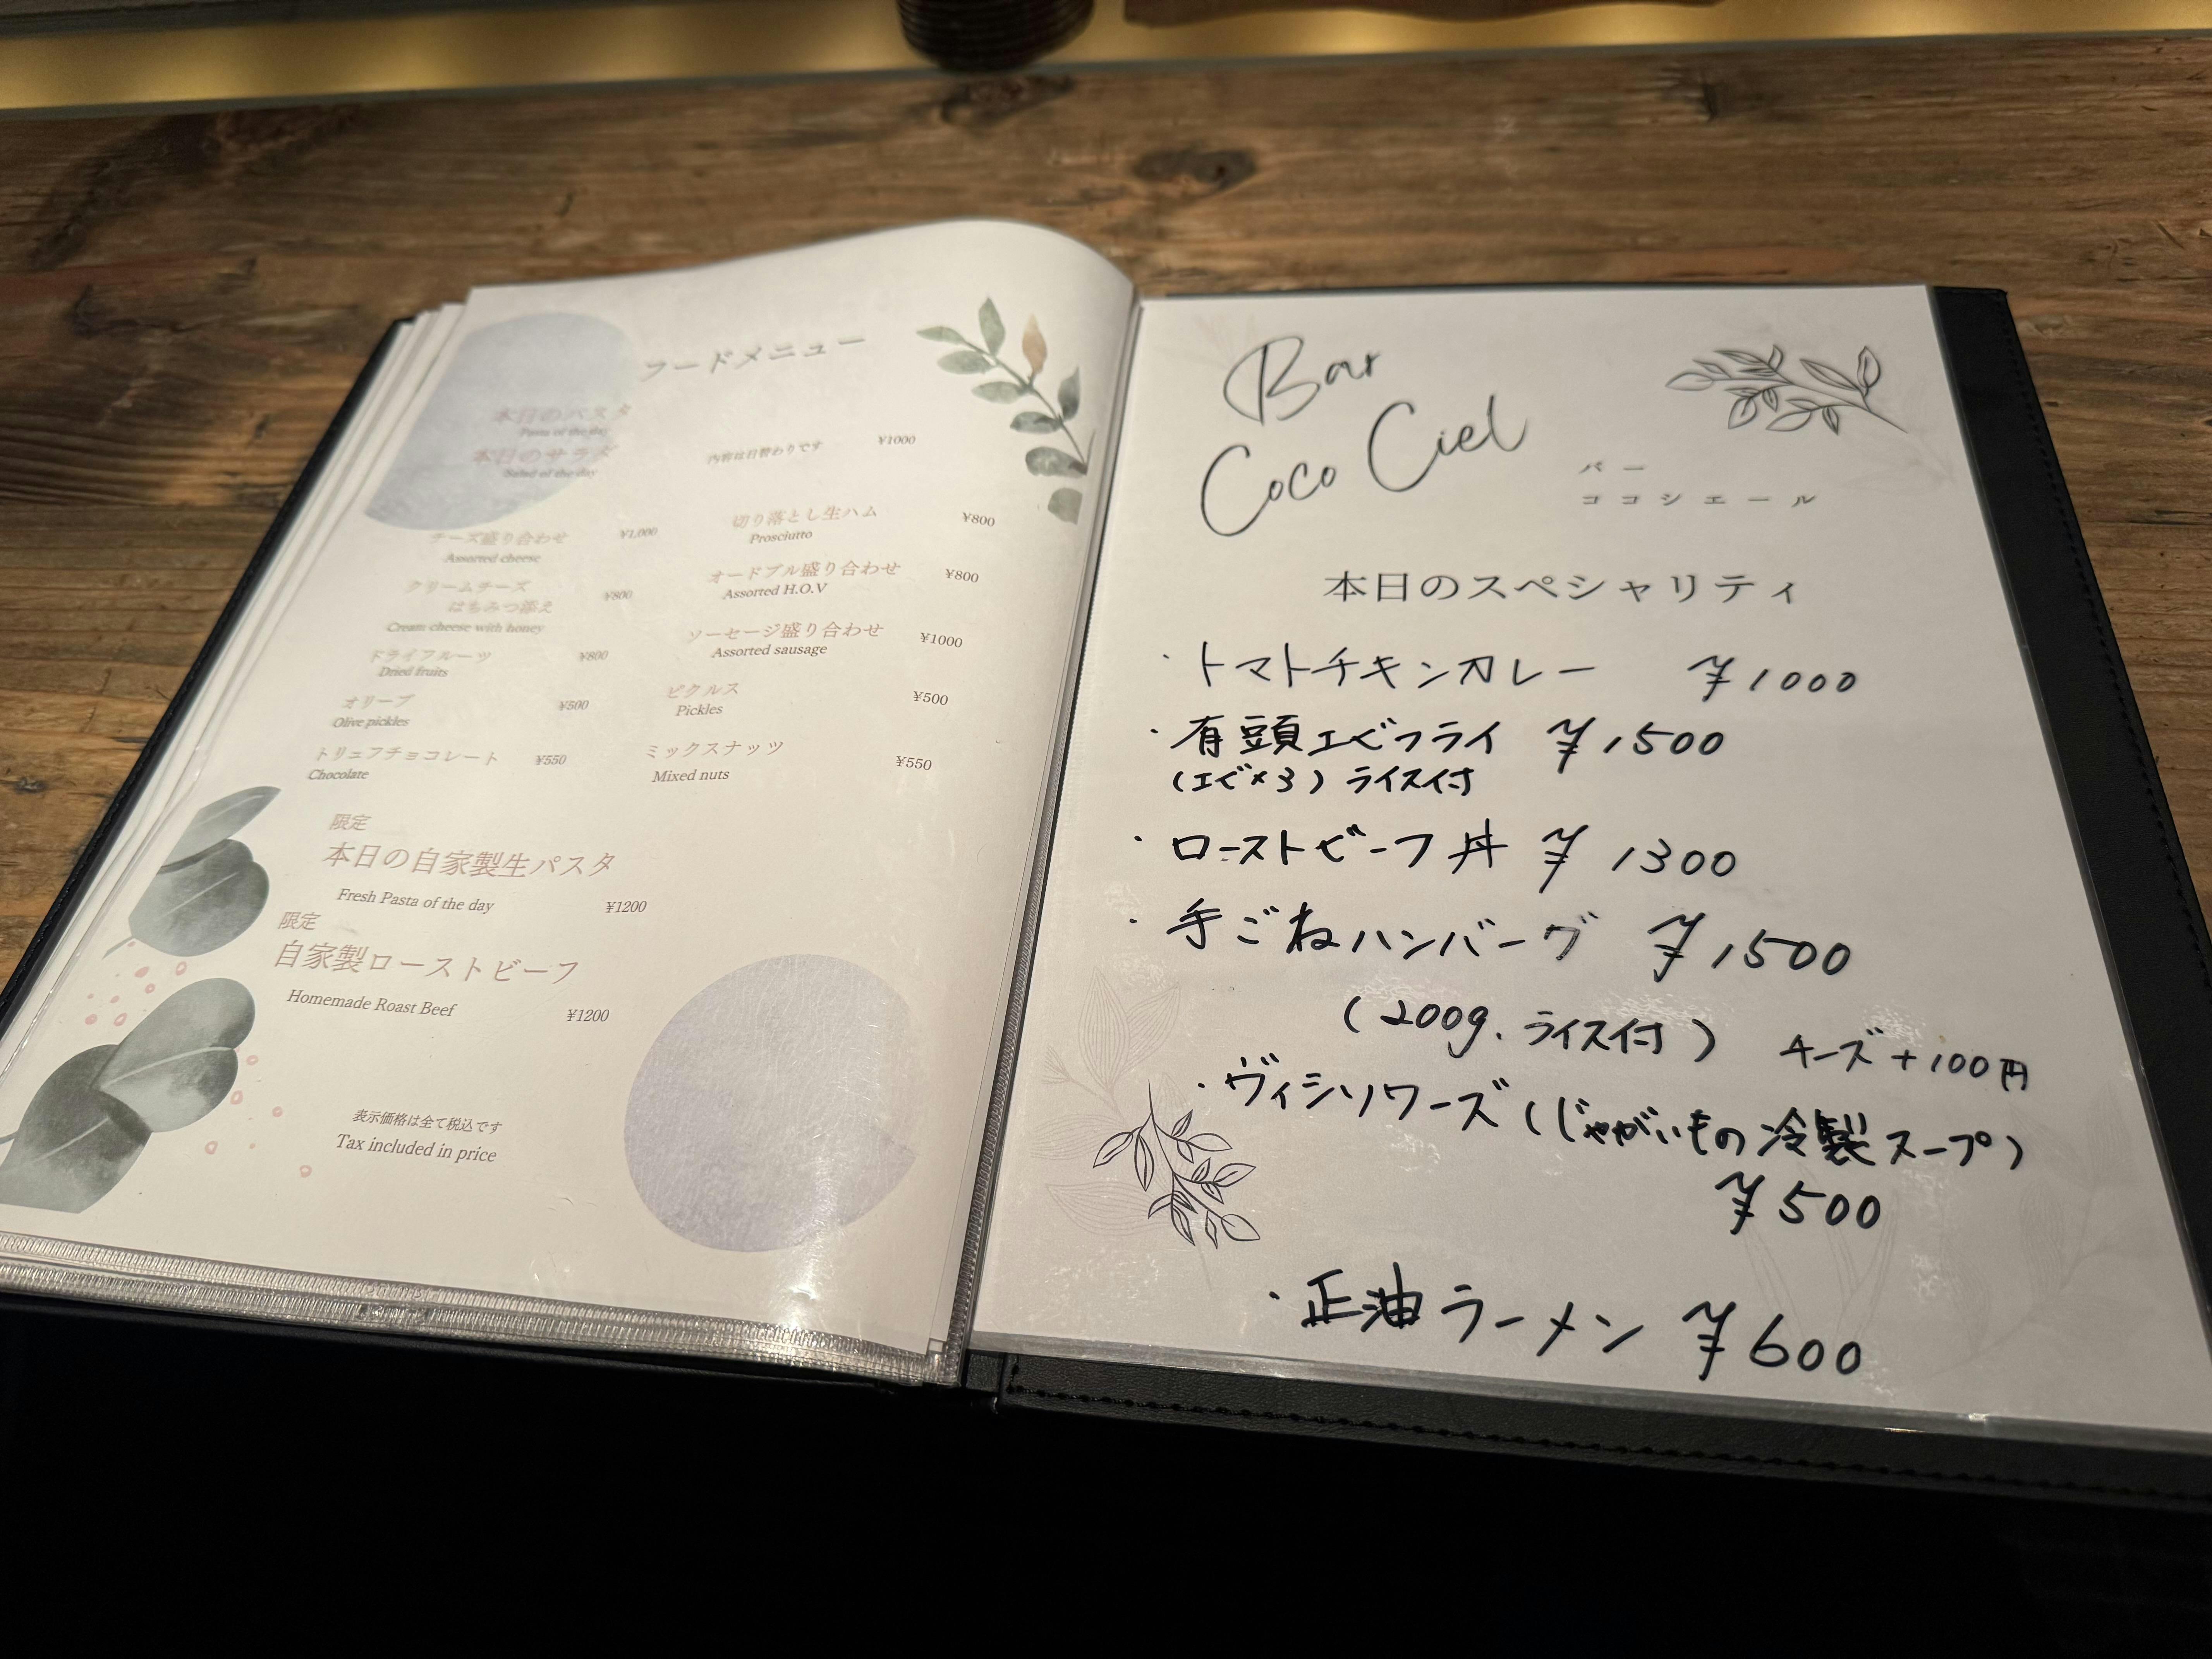 フードメニュー
本日のパスタ
Pasta of the day
本日のサラダ
Salad of the day
内容は日替わりです
¥1000
チーズ盛り合わせ ¥1,000
Assorted cheese
クリームチーズ
はちみつ添え ¥800
Cream cheese with honey
ドライフルーツ ¥800
Dried fruits
オリーブ ¥500
Olive pickles
トリュフチョコレート ¥550
Chocolate
切り落とし生ハム ¥800
Prosciutto
オードブル盛り合わせ ¥800
Assorted H.O.V
ソーセージ盛り合わせ ¥1000
Assorted sausage
ピクルス ¥500
Pickles
ミックスナッツ ¥550
Mixed nuts
限定
本日の自家製生パスタ
Fresh Pasta of the day ¥1200
限定
自家製ローストビーフ
Homemade Roast Beef ¥1200
表示価格は全て税込です
Tax included in price
Bar
Coco Ciel
バー
ココシエール
本日のスペシャリティ
・トマトチキンカレー ¥1000
・有頭エビフライ ¥1500
(エビ×3) ライス付
・ローストビーフ丼 ¥1300
・手ごねハンバーグ ¥1500
(200g、ライス付) チーズ+100円
・ヴィシソワーズ(じゃがいもの冷製スープ)
¥500
・正油ラーメン ¥600